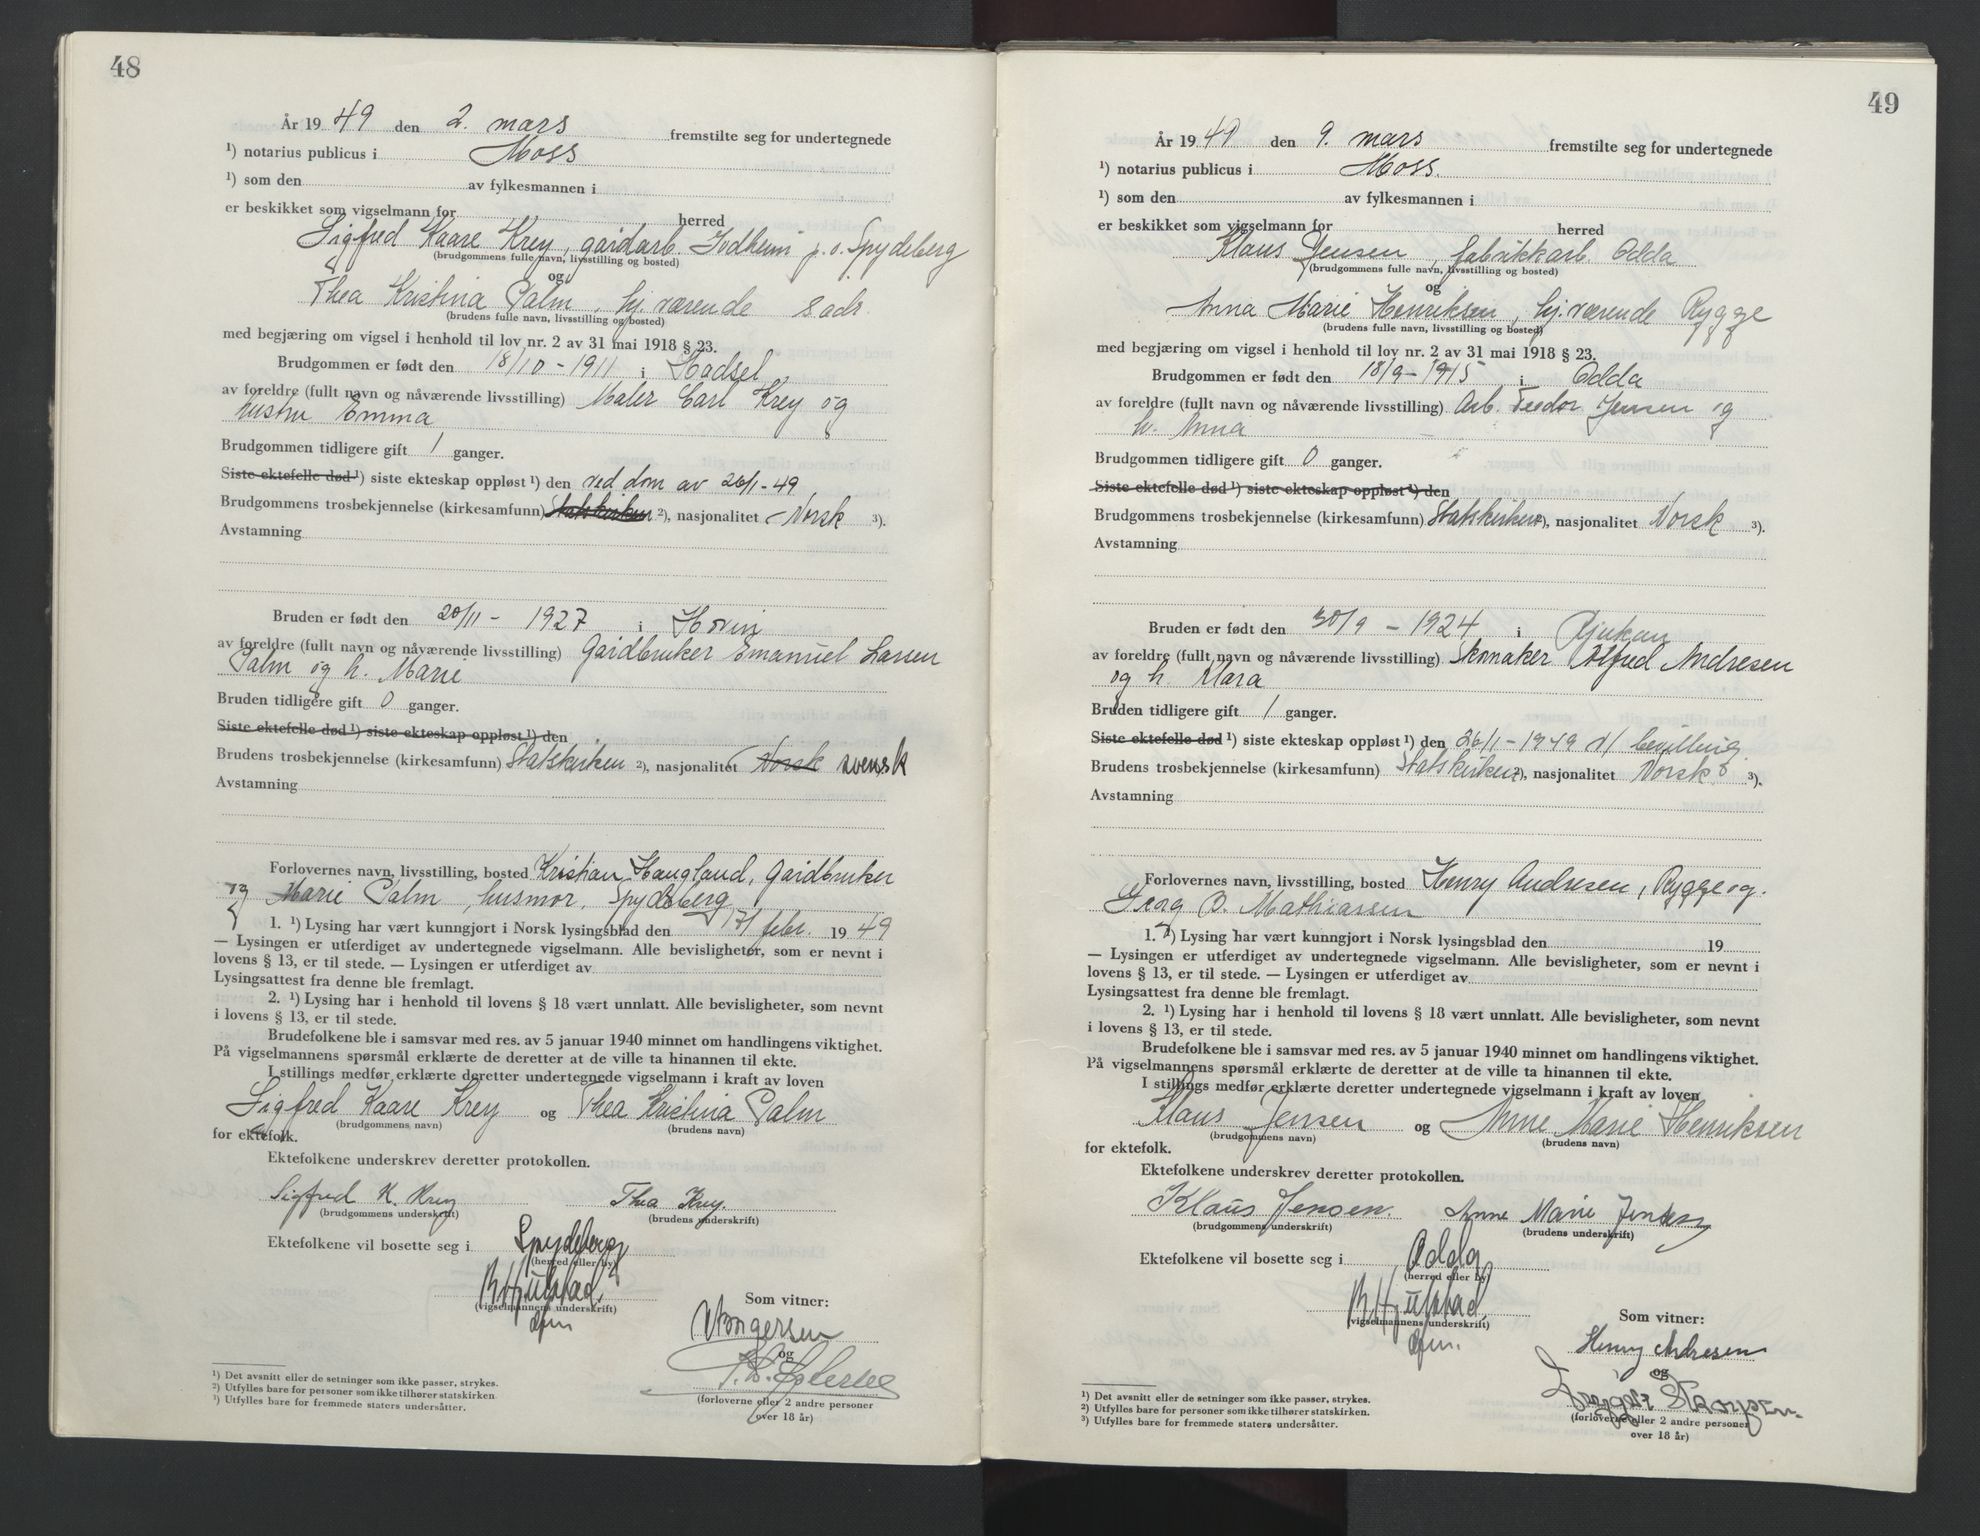 48
År 1949 den 2. mars fremstilte seg for undertegnede
¹) notarius publicus i Moss
¹) som den av fylkesmannen i
er beskikket som vigselmann for herred
Sigfred Kaare Krey, gårdarb. p. o. Spydeberg
(brudgommens fulle navn, livsstilling og bosted)
og
Thea Kristina Palm, hj.værende sadr.
(brudens fulle navn, livsstilling og bosted)
med begjæring om vigsel i henhold til lov nr. 2 av 31 mai 1918 § 23.
Brudgommen er født den 18/10 - 1911 i Hadsel
av foreldre (fullt navn og nåværende livsstilling) Maler Carl Krey og
hustru Emma
Brudgommen tidligere gift 1 ganger.
Siste ektefelle død ¹) siste ekteskap oppløst ¹) den ved dom av 26/1-49
Brudgommens trosbekjennelse (kirkesamfunn) Statskirken ²), nasjonalitet Norsk ³).
Avstamning
Bruden er født den 20/11 - 1927 i Hovin
av foreldre (fullt navn og nåværende livsstilling) Gårdbruker Emanuel Larsen
Palm og h. Marie
Bruden tidligere gift 0 ganger.
Siste ektefelle død ¹) siste ekteskap oppløst ¹) den
Brudens trosbekjennelse (kirkesamfunn) Statskirken ²), nasjonalitet Norsk svensk
Avstamning
Forlovernes navn, livsstilling, bosted Kristian Haugland, Gårdbruker
og Marie Palm, husmor, Spydeberg
1. ¹) Lysing har vært kunngjort i Norsk lysingsblad den 17/ febr. 1949
— Lysingen er utferdiget av undertegnede vigselmann. Alle bevisligheter, som er nevnt i
lovens § 13, er til stede. — Lysingen er utferdiget av
Lysingsattest fra denne ble fremlagt.
2. ¹) Lysing har i henhold til lovens § 18 vært unnlatt. Alle bevisligheter, som nevnt
i lovens § 13, er til stede.
Brudefolkene ble i samsvar med res. av 5 januar 1940 minnet om handlingens viktighet.
På vigselmannens spørsmål erklærte de deretter at de ville ta hinannen til ekte.
I stillings medfør erklærte deretter undertegnede vigselmann i kraft av loven
Sigfred Kaare Krey og Thea Kristina Palm
(brudgommens navn) (brudens navn)
for ektefolk.
Ektefolkene underskrev deretter protokollen.
Sigfred K. Krey Thea Krey.
(brudgommens underskrift) (brudens underskrift)
Ektefolkene vil bosette seg i Spydeberg
(herred eller by)
(vigselmannens underskrift)
Som vitner:
og
(forloverne eller 2 andre personer
over 18 år)
¹) Det avsnitt eller de setninger som ikke passer, strykes.
²) Utfylles bare for personer som ikke tilhører statskirken.
³) Utfylles bare for fremmede staters undersåtter.
49
År 1949 den 9. mars fremstilte seg for undertegnede
¹) notarius publicus i Moss.
¹) som den av fylkesmannen i
er beskikket som vigselmann for herred
Klaus Jensen, fabrikkarb. Odda
(brudgommens fulle navn, livsstilling og bosted)
og
Anna Marie Henriksen, hj.værende Rygge
(brudens fulle navn, livsstilling og bosted)
med begjæring om vigsel i henhold til lov nr. 2 av 31 mai 1918 § 23.
Brudgommen er født den 18/9 - 1915 i Odda
av foreldre (fullt navn og nåværende livsstilling) Arb. Teodor Jensen og
h. Anna
Brudgommen tidligere gift 0 ganger.
Siste ektefelle død ¹) siste ekteskap oppløst ¹) den
Brudgommens trosbekjennelse (kirkesamfunn) Statskirken ²), nasjonalitet Norsk ³).
Avstamning
Bruden er født den 30/9 - 1924 i Rjukan
av foreldre (fullt navn og nåværende livsstilling) Skomaker Alfred Andresen
og h. Klara
Bruden tidligere gift 1 ganger.
Siste ektefelle død ¹) siste ekteskap oppløst ¹) den 26/1 - 1949 v/ bevilling
Brudens trosbekjennelse (kirkesamfunn) Statskirken ²), nasjonalitet Norsk ³).
Avstamning
Forlovernes navn, livsstilling, bosted Henry Andresen, Rygge og.
Georg O. Mathiassen
1. ¹) Lysing har vært kunngjort i Norsk lysingsblad den 19
— Lysingen er utferdiget av undertegnede vigselmann. Alle bevisligheter, som er nevnt i
lovens § 13, er til stede. — Lysingen er utferdiget av
Lysingsattest fra denne ble fremlagt.
2. ¹) Lysing har i henhold til lovens § 18 vært unnlatt. Alle bevisligheter, som nevnt
i lovens § 13, er til stede.
Brudefolkene ble i samsvar med res. av 5 januar 1940 minnet om handlingens viktighet.
På vigselmannens spørsmål erklærte de deretter at de ville ta hinannen til ekte.
I stillings medfør erklærte deretter undertegnede vigselmann i kraft av loven
Klaus Jensen og Anne Marie Henriksen
(brudgommens navn) (brudens navn)
for ektefolk.
Ektefolkene underskrev deretter protokollen.
Klaus Jensen. Anne Marie Jensen
(brudgommens underskrift) (brudens underskrift)
Ektefolkene vil bosette seg i Odda
(herred eller by)
(vigselmannens underskrift)
Som vitner:
Henry Andresen
og
(forloverne eller 2 andre personer
over 18 år)
¹) Det avsnitt eller de setninger som ikke passer, strykes.
²) Utfylles bare for personer som ikke tilhører statskirken.
³) Utfylles bare for fremmede staters undersåtter.